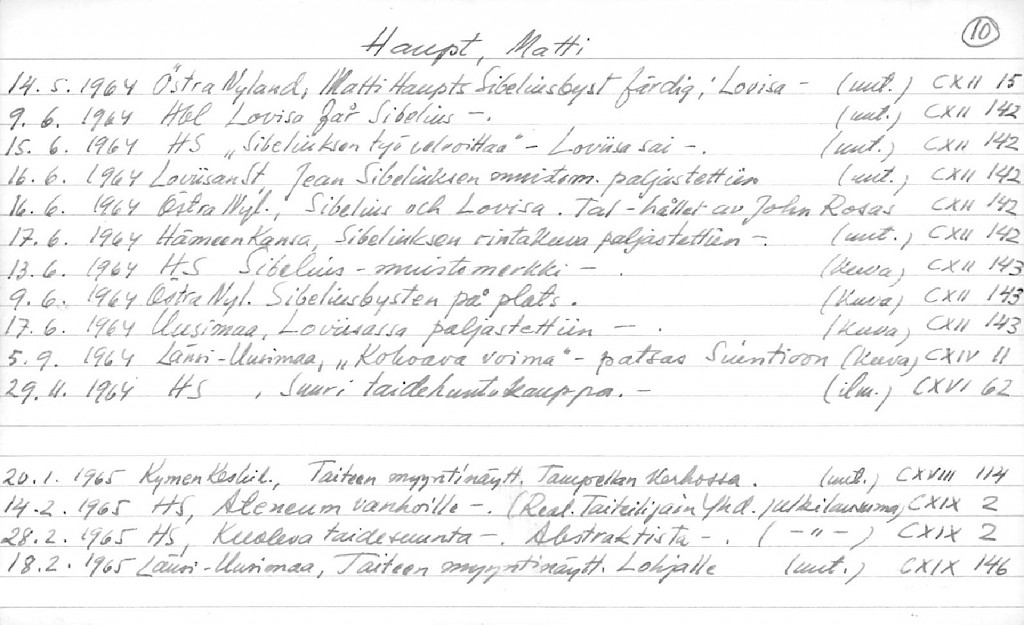 10
Haupt, Matti
14.5.1964 Östra Nyland, Matti Haupts Sibeliusbyst färdig; Lovisa - (uut.) CXII 15
9.6. 1964 Hbl Lovisa får Sibelius -. (uut.) CXII 142
15.6. 1964 HS „Sibeliuksen työ velvoittaa" - Loviisa sai -. (uut.) CXII 142
16.6. 1964 Loviisan St, Jean Sibeliuksen muistom. paljastettiin (uut.) CXII 142
16.6. 1964 Östra Nyl., Sibelius och Lovisa. Tal - hållet av John Rosas CXII 142
17.6. 1964 Hämeen Kansa, Sibeliuksen rintakuva paljastettiin -. (uut.) CXII 142
13.6. 1964 HS Sibelius - muistomerkki - . (kuva) CXII 143
9.6. 1964 Östra Nyl. Sibeliusbysten på plats. (kuva) CXII 143
17.6. 1964 Uusimaa, Loviisassa paljastettiin - . (kuva) CXII 143
5.9. 1964 Länsi-Uusimaa, „Kohoava voima" - patsas Siuntioon (kuva) CXIV 11
29.11. 1964 HS , Suuri taidehuutokauppa. - (ilm.) CXVI 62
20.1. 1965 Kymen Keskil., Taiteen myyntinäytt. Tampellan Kerhossa. (uut.) CXVIII 114
14.2. 1965 HS, Ateneum vanhoille -. (Real. Taiteilijain Yhd. julkilausuma) CXIX 2
28.2. 1965 HS, Kuoleva taidesuunta -. Abstraktista -. ( -"- ) CXIX 2
18.2. 1965 Länsi-Uusimaa, Taiteen myyntinäytt. Lohjalle (uut.) CXIX 146